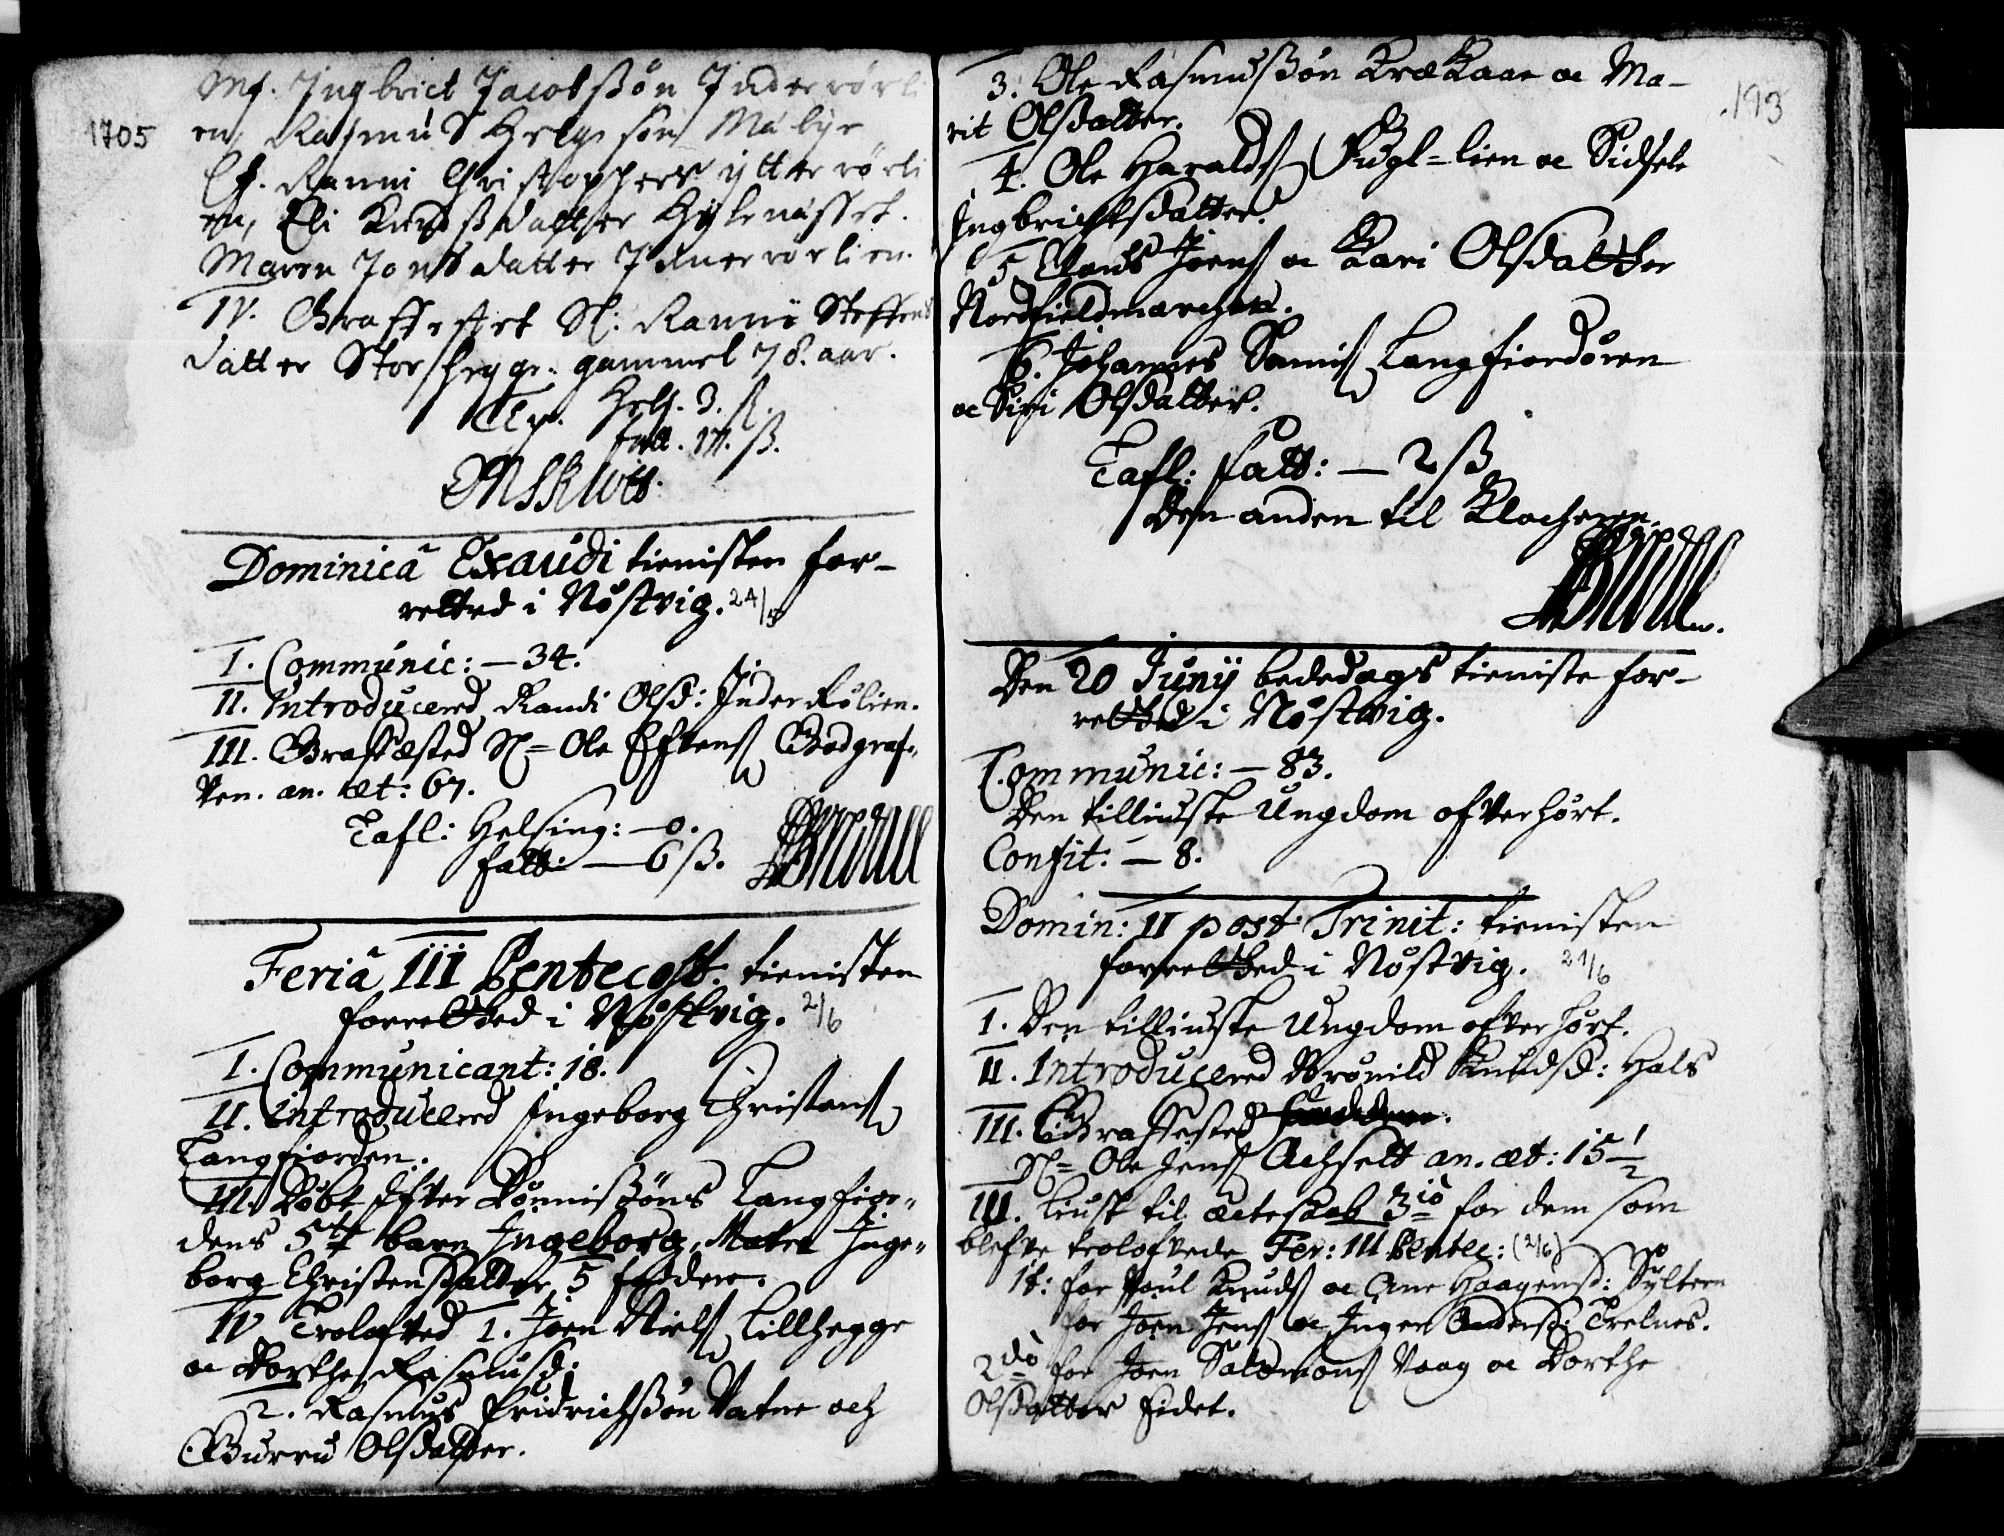 1705
Mf. Ingbrict Jacobßøn Inderrørli
en, Rasmus Helgesøn Målye
Cf. Ranni Christophers ytterrørli
en, Eli Knudßdatter Hylenasset.
Maren Jonsdatter Innerrørlien.
IV. Graffestet Sl: Ranni Steffens
datter Storhegge. gammel 78. aar.
Hels. 3. ß.
fatt. 17. ß.
Dominicâ Exaudi tienisten for-
retted i Nøstvig. 24/5
I. Communic: — 34.
II. Introducered Randi Olsd: Inder Rølien.
III. Grafæsted Sl= Ole Estens Gaadgraf-
ven. an. æt: 67.
Tafl: Helsing: — 0.
fatt: — 6 ß.
Feriâ III Pentecost: tienisten
forretted i Nøstvig. 2/6
I. Communicant: 18.
II. Introducered Ingeborg Christens
Langfiorden.
III. Døbt Peter Rønnißøns Langfior-
dens 5te barn Ingeborg, Mater Inge-
borg Christensdatter, 5 faddere.
IV Trolofved 1. Joen Niels Lillhegge
oc Dorthe Rasmusd:
2. Rasmus Fridrichßøn Vatne och
Gurru Olsdatter.
193
3. Ole Rasmußøn Krækaae oc Ma-
rit Olsdatter.
4. Ole Haralds Fugl=lien oc Sidsele
Ingbrichtsdatter.
5. Claus Joens oc Kari Olsdatter
Nordfieldmarchen.
6. Johannes Samis Langfiordøren
oc Siri Olsdatter.
Tafl: fatt: — 2 ß
Den anden til Klocheren.
Den 20 Junij bededags tieniste for-
retted i Nøstvig.
Communic: — 83.
Den tilliuste Ungdom ofverhørt.
Confit: — 8.
Domin: II post Trinit: tienisten
forretted i Nøstvig. 21/6
I. Den tilliuste Ungdom ofverhørt.
II. Introducered Brønild Knudsd: Hals
III. Graffested
Sl= Ole Jens Achselt an. æt: 15 1/2
III. Liust til ecteskab 3iò for dem som
blefve trolofvede Fer: III Pentec: (2/6)
it: for Poul Knuds oc Ane Haagensd: Sylteren
for Joen Jens oc Inger Andersd: Trelnes.
2dò for Joen Salomons Vaag oc Dorthe
Olsdatter Eidet.